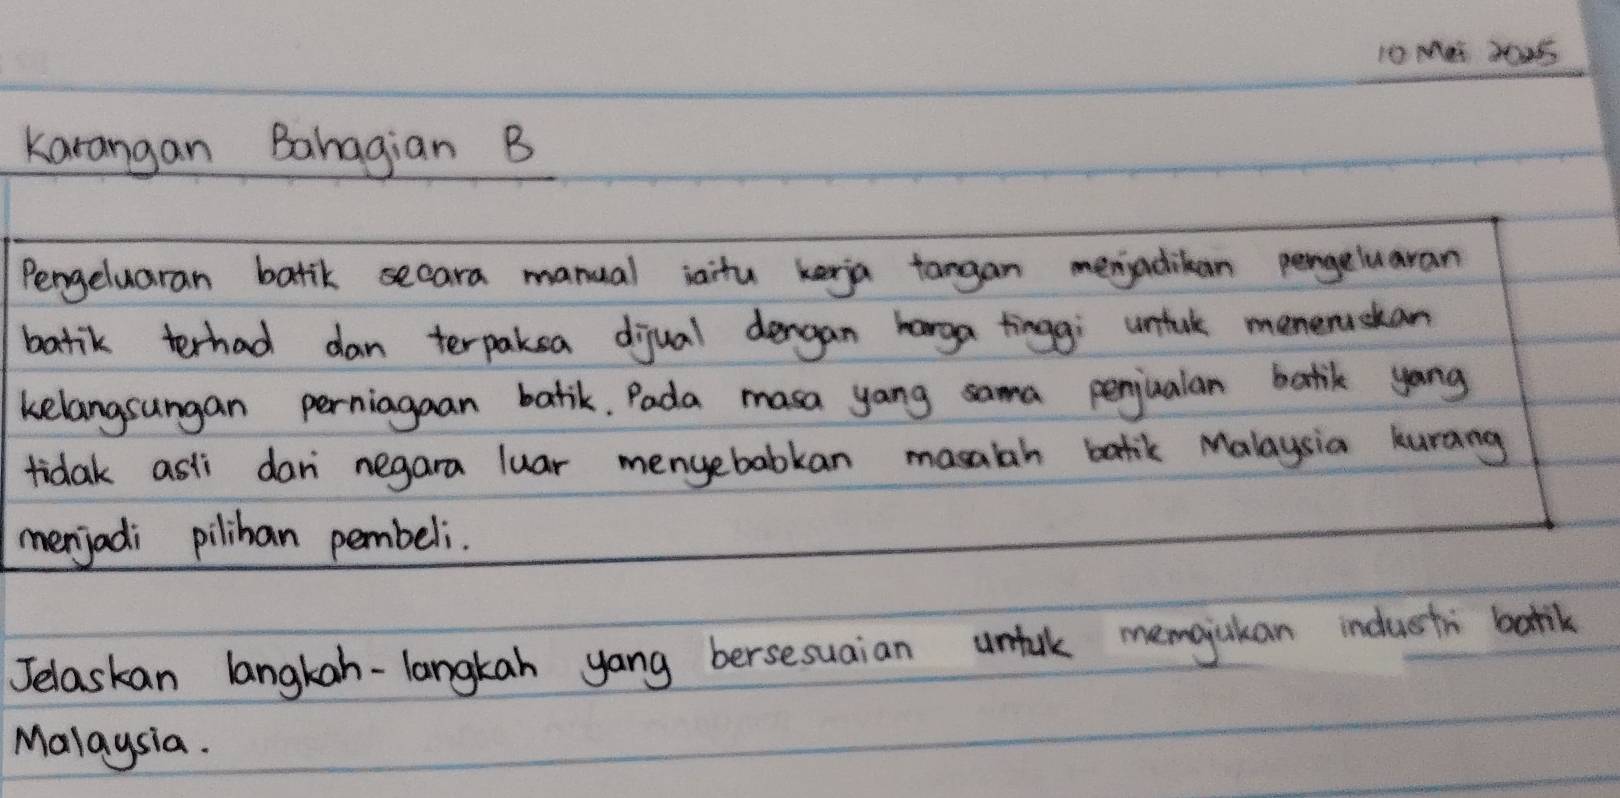 10 Mei 2025
Karangan Bahagian B
Pengeluaran batik secara manual iaitu kerja tangan menjadikan pengeluaran
batik terhad dan terpaksa dijual dengan harga tinggi untuk meneruskan
kelangsungan perniagaan batik. Pada masa yang sama penjualan batik yang
tidak asli dari negara luar menyebabkan masalah batik Malaysia kurang
menjadi pilihan pembeli.
Jelaskan langkah-langkah yang bersesuaian untuk memajukan industri batik
Malaysia.